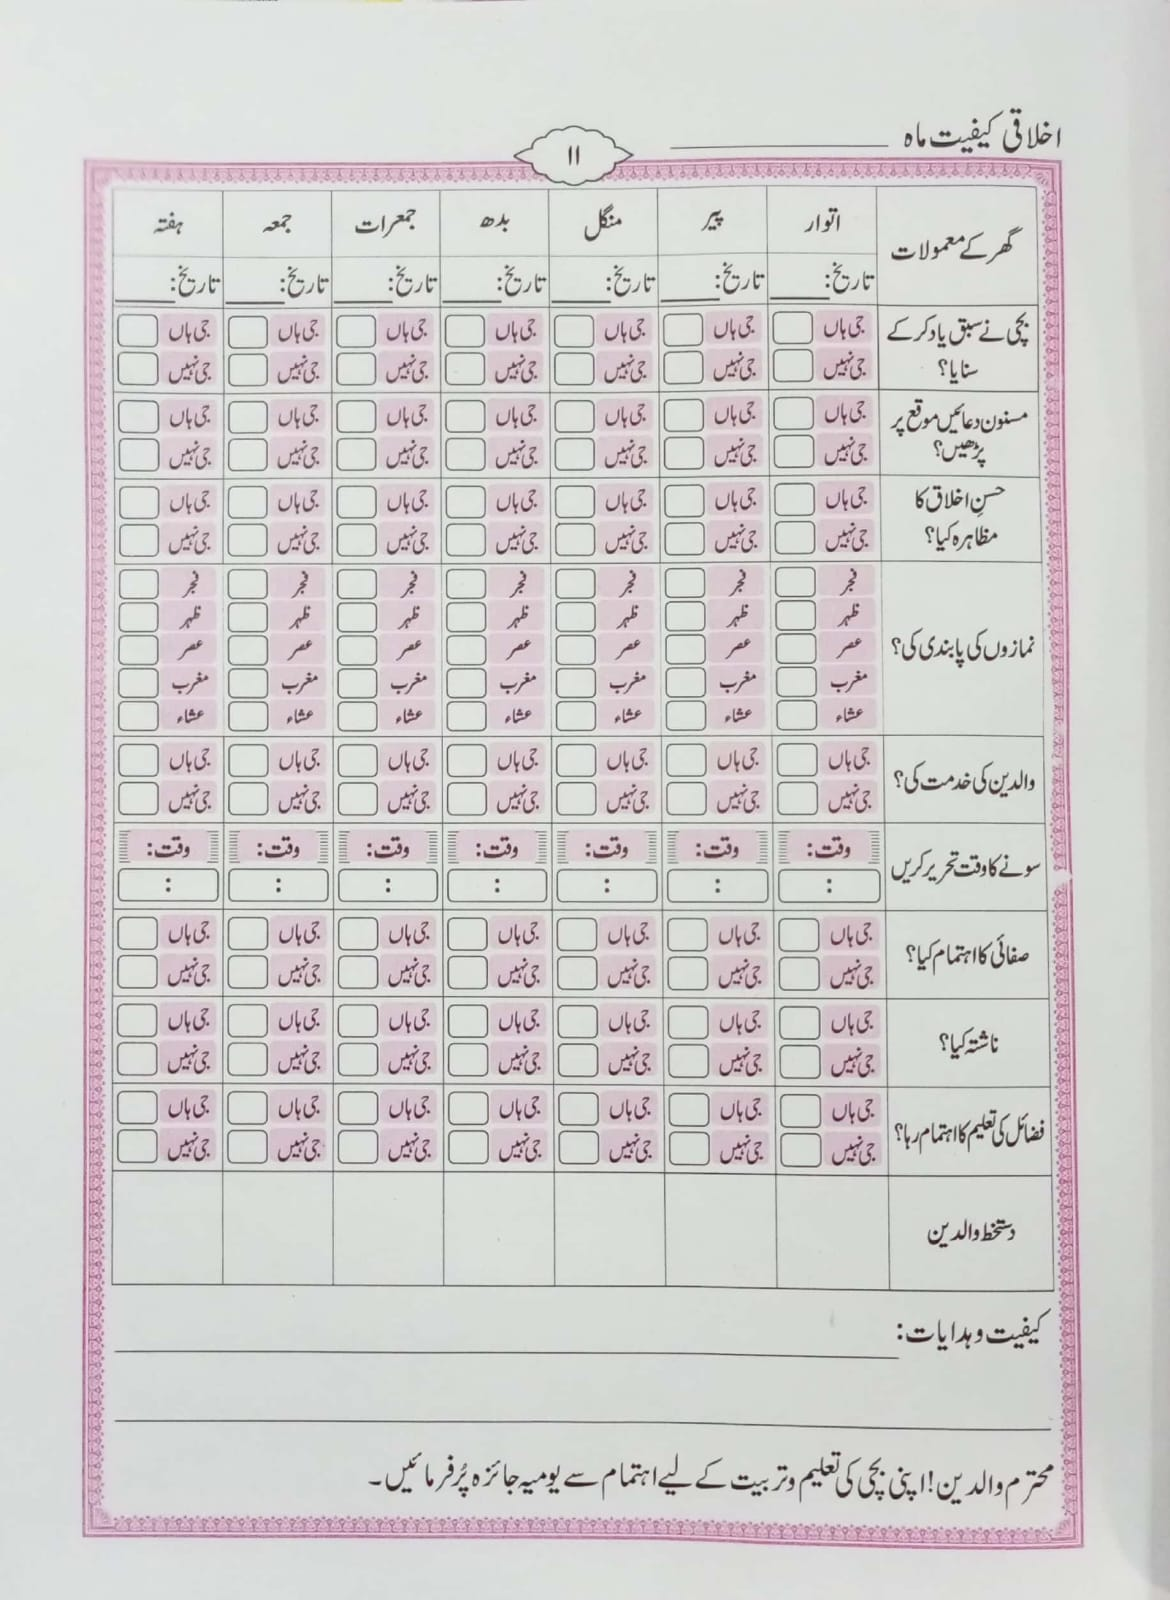 اخلاقی کیفیت ماہ
۱۱
گھر کے معمولات اتوار پیر منگل بدھ جمعرات جمعہ ہفتہ
تاریخ: تاریخ: تاریخ: تاریخ: تاریخ: تاریخ: تاریخ:
بچی نے سبق یاد کر کے جی ہاں جی ہاں جی ہاں جی ہاں جی ہاں جی ہاں جی ہاں
سنایا؟ جی نہیں جی نہیں جی نہیں جی نہیں جی نہیں جی نہیں جی نہیں
مسنون دعائیں موقع پر جی ہاں جی ہاں جی ہاں جی ہاں جی ہاں جی ہاں جی ہاں
پڑھیں؟ جی نہیں جی نہیں جی نہیں جی نہیں جی نہیں جی نہیں جی نہیں
حسنِ اخلاق کا جی ہاں جی ہاں جی ہاں جی ہاں جی ہاں جی ہاں جی ہاں
مظاہرہ کیا؟ جی نہیں جی نہیں جی نہیں جی نہیں جی نہیں جی نہیں جی نہیں
فجر فجر فجر فجر فجر فجر فجر
ظہر ظہر ظہر ظہر ظہر ظہر ظہر
نمازوں کی پابندی کی؟ عصر عصر عصر عصر عصر عصر عصر
مغرب مغرب مغرب مغرب مغرب مغرب مغرب
عشاء عشاء عشاء عشاء عشاء عشاء عشاء
والدین کی خدمت کی؟ جی ہاں جی ہاں جی ہاں جی ہاں جی ہاں جی ہاں جی ہاں
جی نہیں جی نہیں جی نہیں جی نہیں جی نہیں جی نہیں جی نہیں
سونے کا وقت تحریر کریں وقت: وقت: وقت: وقت: وقت: وقت: وقت:
: : : : : : :
صفائی کا اہتمام کیا؟ جی ہاں جی ہاں جی ہاں جی ہاں جی ہاں جی ہاں جی ہاں
جی نہیں جی نہیں جی نہیں جی نہیں جی نہیں جی نہیں جی نہیں
ناشتہ کیا؟ جی ہاں جی ہاں جی ہاں جی ہاں جی ہاں جی ہاں جی ہاں
جی نہیں جی نہیں جی نہیں جی نہیں جی نہیں جی نہیں جی نہیں
فضائل کی تعلیم کا اہتمام رہا؟ جی ہاں جی ہاں جی ہاں جی ہاں جی ہاں جی ہاں جی ہاں
جی نہیں جی نہیں جی نہیں جی نہیں جی نہیں جی نہیں جی نہیں
دستخط والدین
کیفیت و ہدایات:
محترم والدین! اپنی بچی کی تعلیم و تربیت کے لیے اہتمام سے یومیہ جائزہ پُر فرمائیں۔